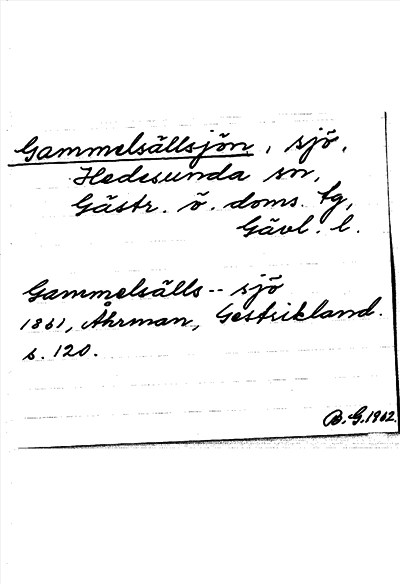 Gammelsällsjön, sjö,
Hedesunda sn,
Gästr. ö. doms. tg,
Gävl. l.
Gammelsälls-- sjö
1861, Åhrman, Gestrikland.
s. 120.
B.G. 1962.